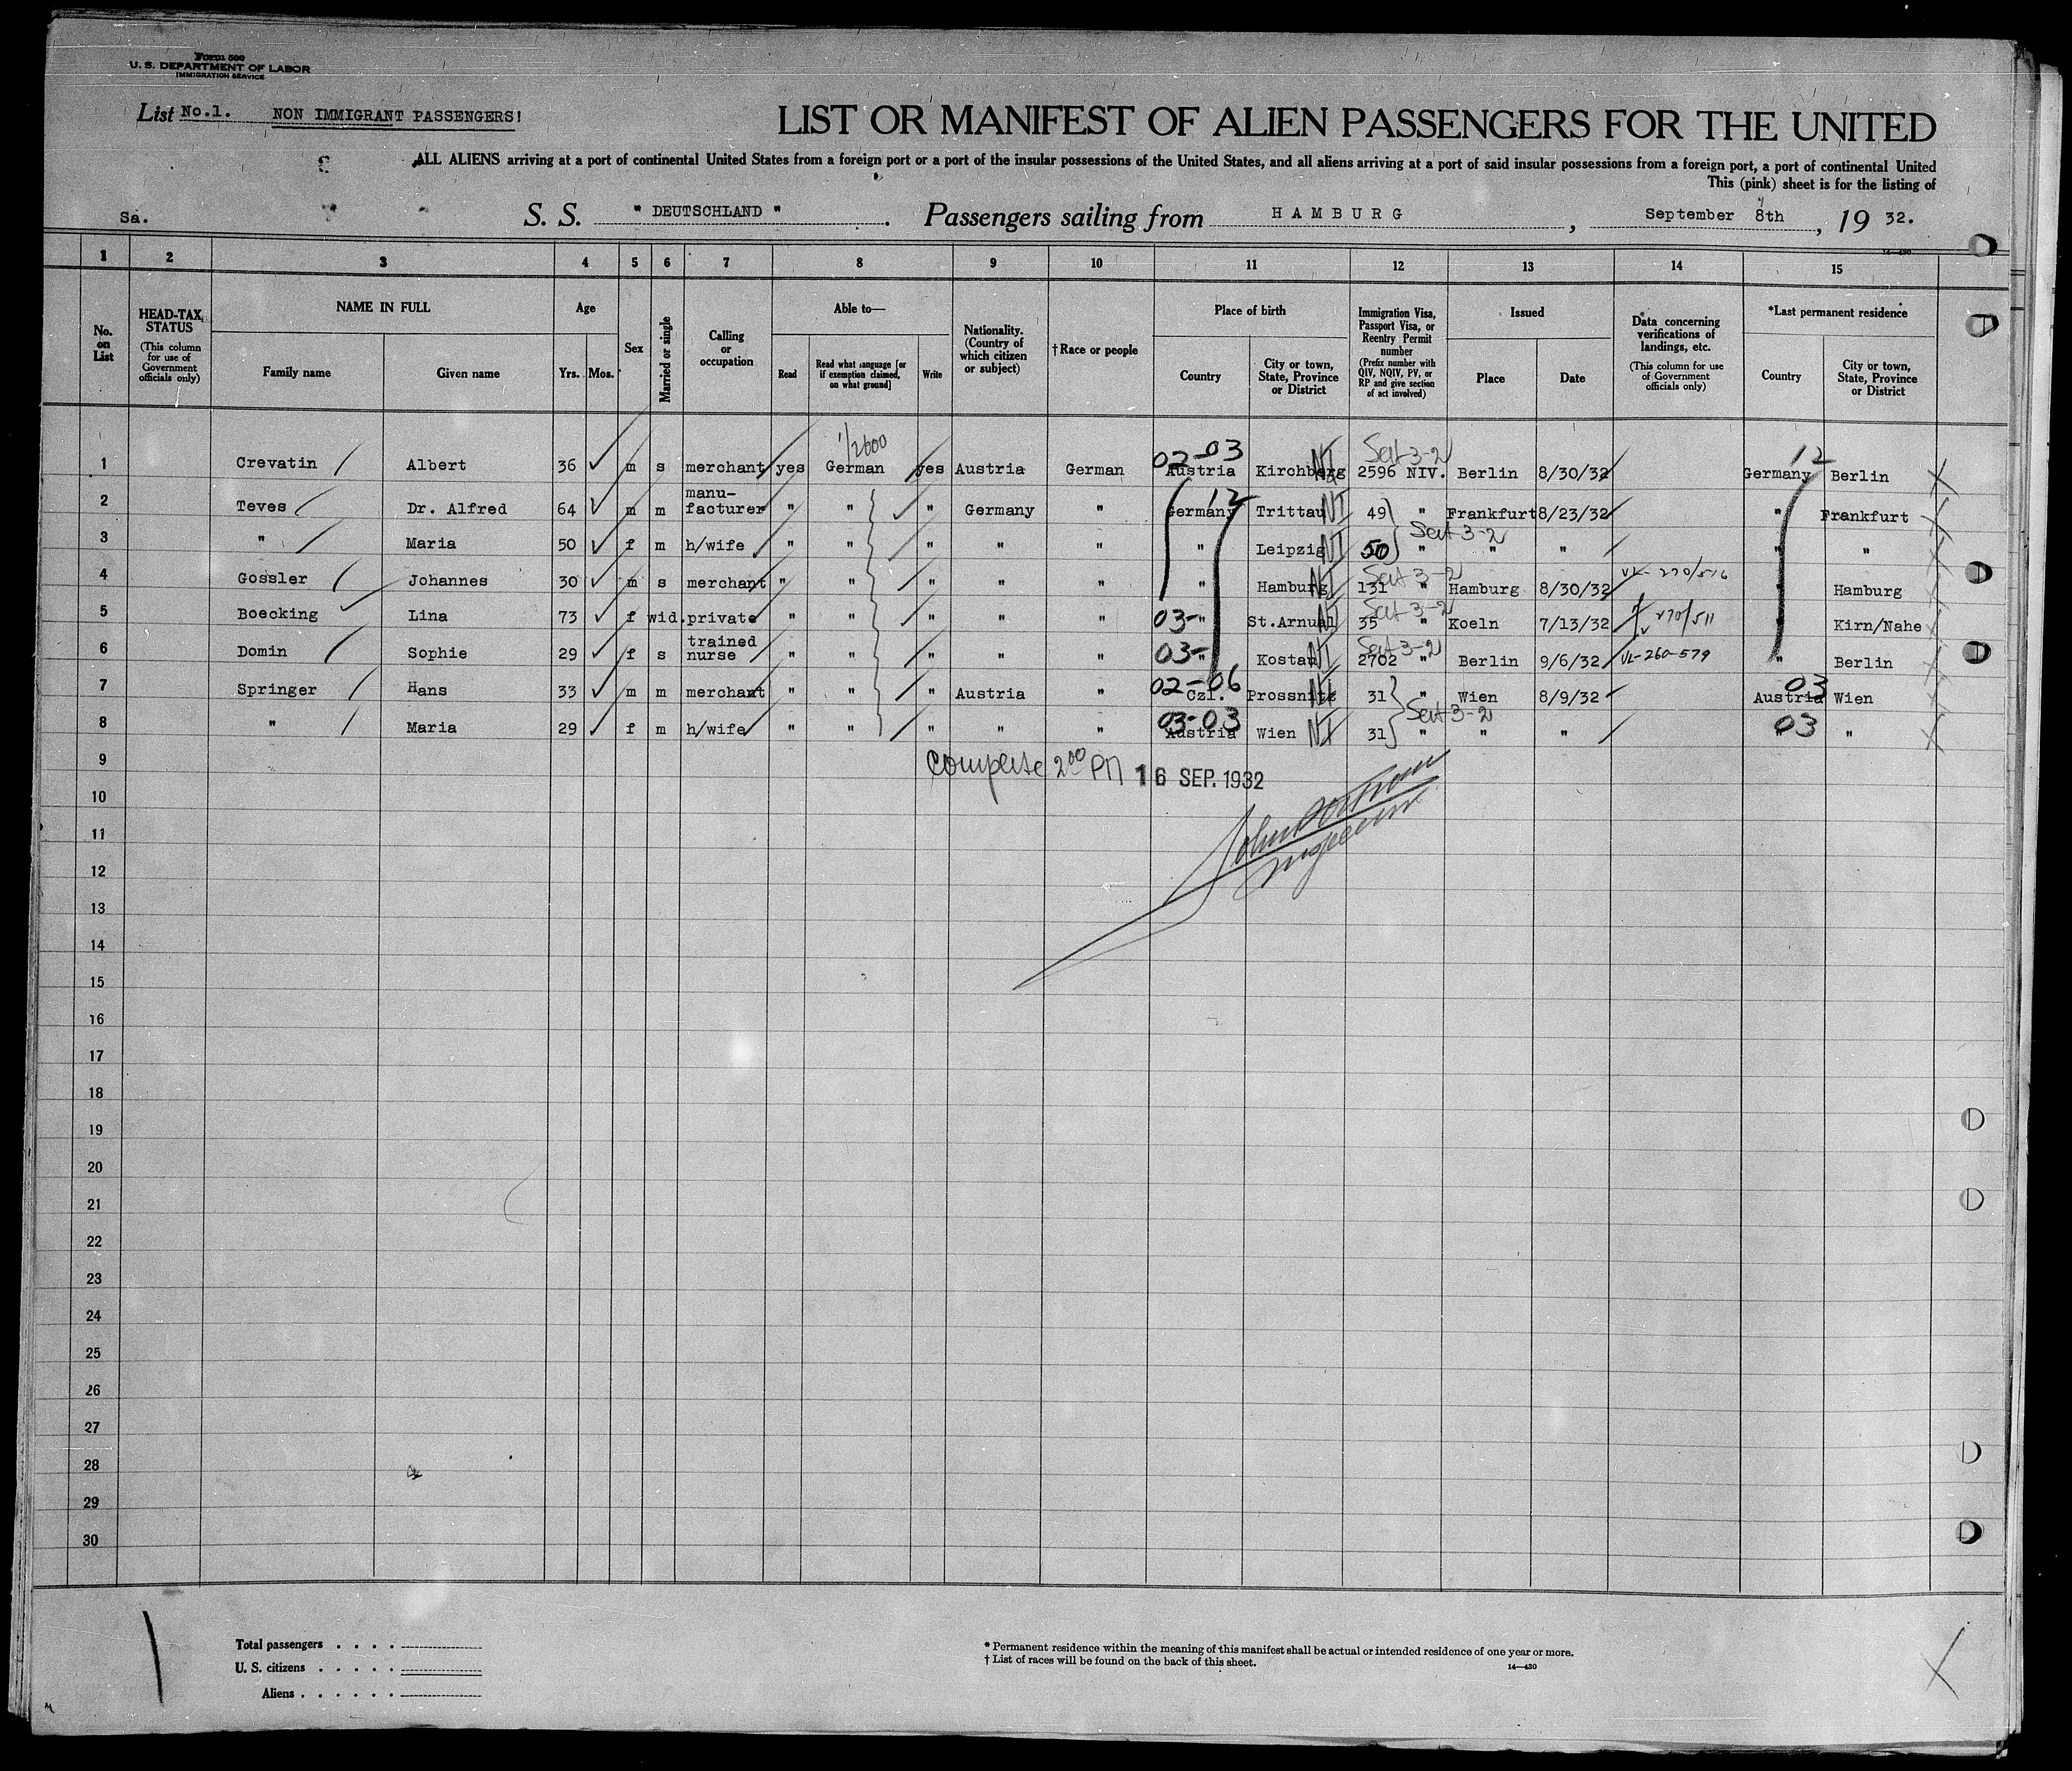 Form 500
U. S. DEPARTMENT OF LABOR
IMMIGRATION SERVICE
List No.1. NON IMMIGRANT PASSENGERS!
LIST OR MANIFEST OF ALIEN PASSENGERS FOR THE UNITED
ALL ALIENS arriving at a port of continental United States from a foreign port or a port of the insular possessions of the United States, and all aliens arriving at a port of said insular possessions from a foreign port, a port of continental United
This (pink) sheet is for the listing of
Sa. S. S. " DEUTSCHLAND ". Passengers sailing from HAMBURG, September 8th, 19 32.
14—430
1 2 3 4 5 6 7 8 9 10 11 12 13 14 15
No. on List
HEAD-TAX STATUS (This column for use of Government officials only)
NAME IN FULL
Family name Given name
Age
Yrs. Mos.
Sex
Married or single
Calling or occupation
Able to—
Read Read what language [or if exemption claimed, on what ground] Write
Nationality. (Country of which citizen or subject)
†Race or people
Place of birth
Country City or town, State, Province or District
Immigration Visa, Passport Visa, or Reentry Permit number (Prefix number with QIV, NQIV, PV, or RP and give section of act involved)
Issued
Place Date
Data concerning verifications of landings, etc. (This column for use of Government officials only)
*Last permanent residence
Country City or town, State, Province or District
1/2600 02-03 Sect 3-2 12
1 Crevatin Albert 36 m s merchant yes German yes Austria German Austria Kirchberg NI 2596 NIV. Berlin 8/30/32 Germany Berlin
2 Teves Dr. Alfred 64 m m manu-facturer " " " Germany " Germany 12 Trittau NI 49 " Frankfurt 8/23/32 " Frankfurt
Sect 3-2
3 " Maria 50 f m h/wife " " " " " " Leipzig NI 50 " " " " "
Sect 3-2
4 Gossler Johannes 30 m s merchant " " " " " " Hamburg NI 131 " Hamburg 8/30/32 VL-270/516 " Hamburg
Sect 3-2
5 Boecking Lina 73 f wid. private " " " " " 03- " St.Arnual NI 35 " Koeln 7/13/32 v70/511 " Kirn/Nahe
Sect 3-2
6 Domin Sophie 29 f s trained nurse " " " " " 03- " Kostau NI 2702 " Berlin 9/6/32 VL-260-579 " Berlin
02-06 03
7 Springer Hans 33 m m merchant " " " Austria " Czl. Prossnitz NI 31 " Wien 8/9/32 Austria Wien
03-03 Sect 3-2 03
8 " Maria 29 f m h/wife " " " " " Austria Wien NI 31 " " " "
9 Complete 2 00 PM 16 SEP. 1932
10
11
Inspector
12
13
14
15
16
17
18
19
20
21
22
23
24
25
26
27
28
29
30
Total passengers . . . .
U. S. citizens . . . . .
Aliens . . . . . .
* Permanent residence within the meaning of this manifest shall be actual or intended residence of one year or more.
† List of races will be found on the back of this sheet.
14—430